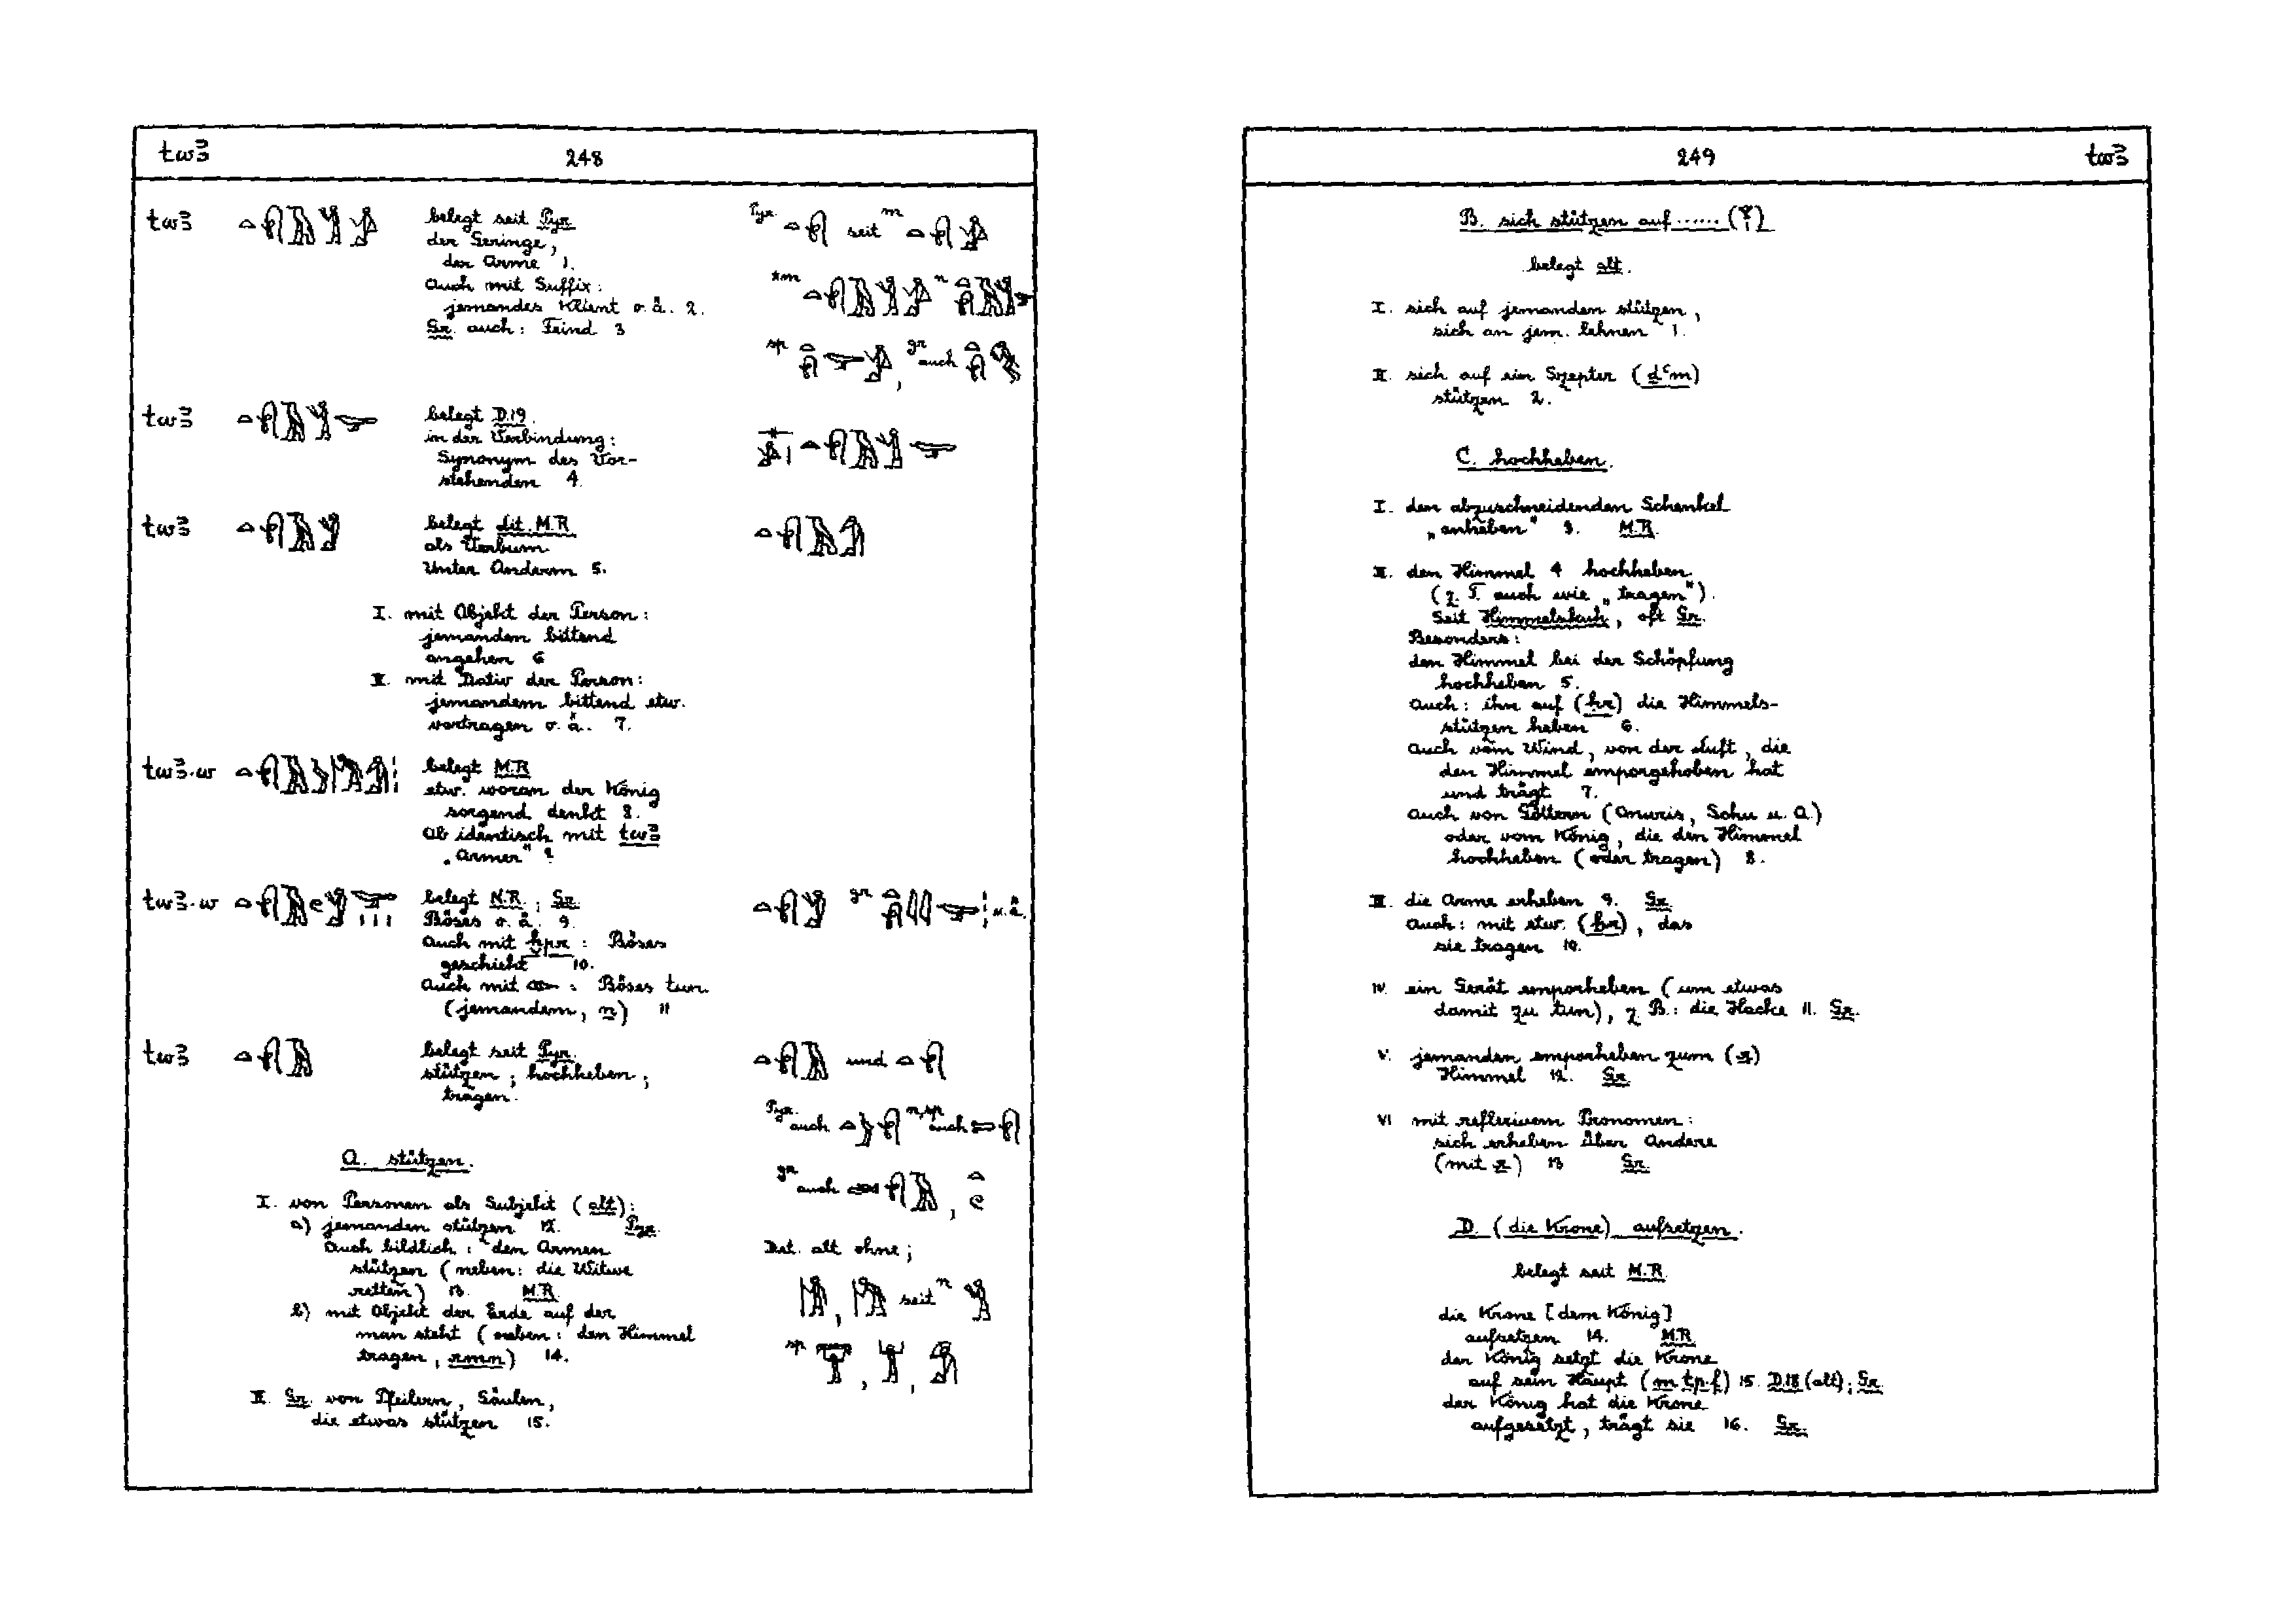 twꜣ 248
twꜣ belegt seit Pyr.
der Geringe,
der Arme 1.
Auch mit Suffix:
jemandes Klient o. ä. 2.
Gr. auch: Feind 3
Pyr. seit m
sp gr auch
twꜣ belegt D.19.
in der Verbindung:
Synonym des Vor-
stehenden 4.
twꜣ belegt Lit. M.R.
als Verbum.
Unter Anderm 5.
I. mit Objekt der Person:
jemanden bittend
angehen 6
II. mit Dativ der Person:
jemandem bittend etw.
vortragen o. ä. 7.
twꜣ.w belegt M.R.
etw. woran der König
sorgend denkt 8.
Ob identisch mit twꜣ
„Armer" ?
twꜣ.w belegt N.R.; Gr.
Böses o. ä. 9.
Auch mit ḫpr: Böses
geschieht 10.
Auch mit : Böses tun.
(jemandem, n) 11
gr u. ä.
twꜣ belegt seit Pyr.
stützen; hochheben;
tragen.
und
Pyr. auch n, sp auch
gr auch ,
A. stützen.
I. von Personen als Subjekt (alt):
a) jemanden stützen 12. Pyr.
Auch bildlich: den Armen
stützen (neben: die Witwe
retten) 13. M.R.
b) mit Objekt der Erde auf der
man steht (neben: den Himmel
tragen, rmn) 14.
II. Gr. von Pfeilern, Säulen,
die etwas stützen 15.
Det. alt ohne;
, seit n
sp , ,
249 twꜣ
B. sich stützen auf ...... (?)
belegt alt.
I. sich auf jemanden stützen,
sich an jem. lehnen 1.
II. sich auf ein Szepter (ḏꜥm)
stützen 2.
C. hochheben.
I. den abzuschneidenden Schenkel
„anheben" 3. M.R.
II. den Himmel 4 hochheben
(z. T. auch wie „tragen").
Seit Himmelskuh, oft Gr.
Besonders:
den Himmel bei der Schöpfung
hochheben 5.
Auch: ihn auf (ḥr) die Himmels-
stützen heben 6.
Auch vom Wind, von der Luft, die
den Himmel emporgehoben hat
und trägt 7.
Auch von Göttern (Onuris, Schu u. A.)
oder vom König, die den Himmel
hochheben (oder tragen) 8.
III. die Arme erheben 9. Gr.
Auch: mit etw. (ẖr), das
sie tragen 10.
IV. ein Gerät emporheben (um etwas
damit zu tun), z. B.: die Hacke 11. Gr.
V. jemanden emporheben zum (r)
Himmel 12. Gr.
VI mit reflexivem Pronomen:
sich erheben über Andere
(mit r) 13 Gr.
D. (die Krone) aufsetzen.
belegt seit M.R.
die Krone [dem König]
aufsetzen 14. M.R.
der König setzt die Krone
auf sein Haupt (m tp.f) 15. D.18 (alt); Gr.
der König hat die Krone
aufgesetzt, trägt sie 16. Gr.